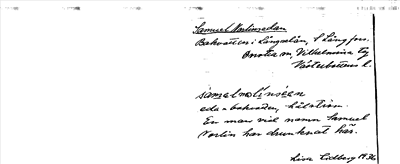 Samuel Norlinsedan
Bakvatten i Långselån, S Långfors.
Onsta m, Vilhelmina tg
Västerbottens l.
samelnolinseen
eda = bakvatten, hålström.
En man vid namn Samuel
Norlin har drunknat här.
Lidberg 1936